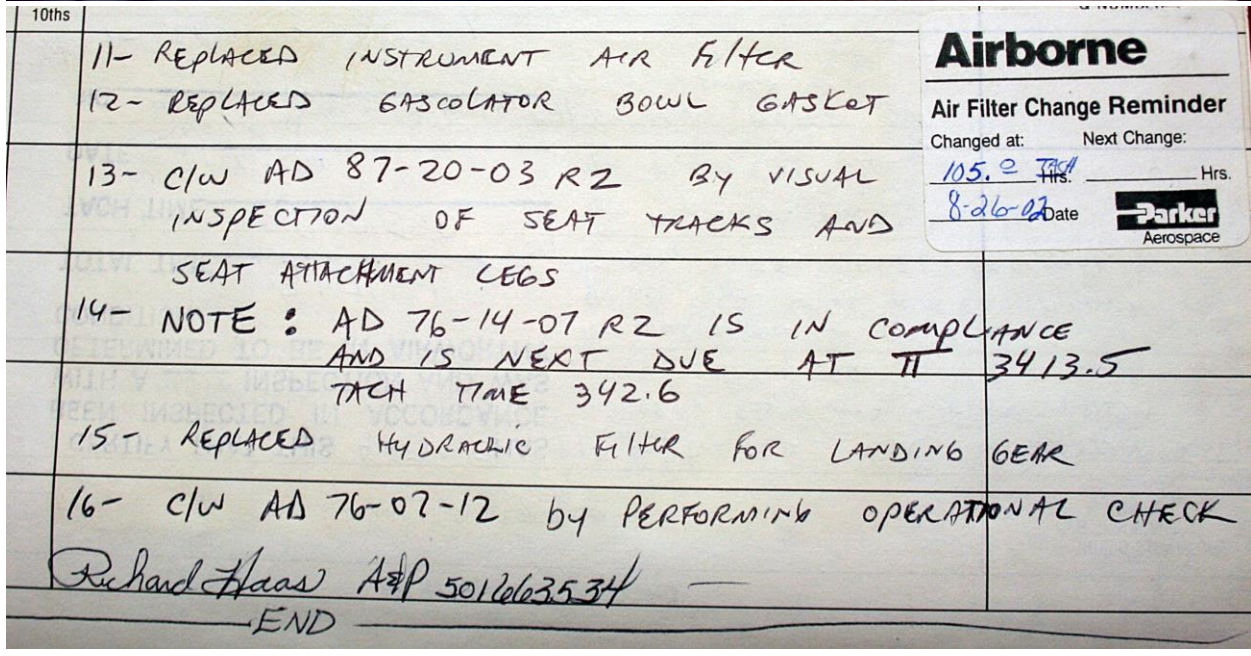 10ths
11- REPLACED INSTRUMENT AIR FilteR
12- REPLACED GASCOLATOR BOWL GASKET
13- C/W AD 87-20-03 R2 BY VISUAL
INSPECTION OF SEAT TRACKS AND
SEAT ATTACHMENT LEGS
14- NOTE : AD 76-14-07 R2 IS IN COMPLIANCE
AND IS NEXT DUE AT TT 3413.5
TACH TIME 342.6
15- REPLACED HYDRAULIC FilteR FOR LANDING GEAR
16- C/W AD 76-07-12 by PERFORMING OPERATIONAL CHECK
Richard Haas A&P 501663534
END
Airborne
Air Filter Change Reminder
Changed at: Next Change:
105.0 TACH Hrs. Hrs.
8-26-02 Date
Parker
Aerospace